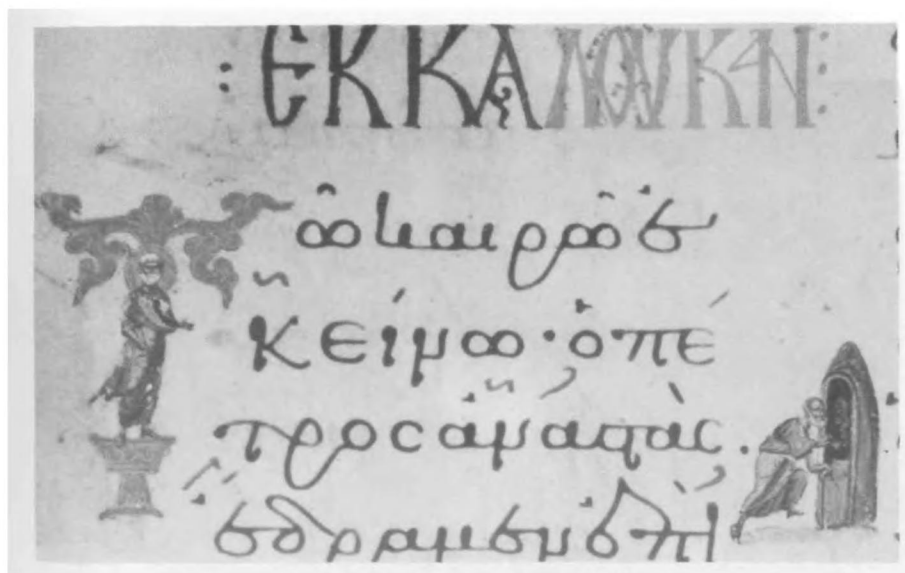 : ΕΚ ΚΑ ΛΟΥΚΑΝ :
Τῶ καιρῶ ἐ
κείνω· ὁ πέ
τρος ἀναστὰς
ἔδραμεν ἐπὶ